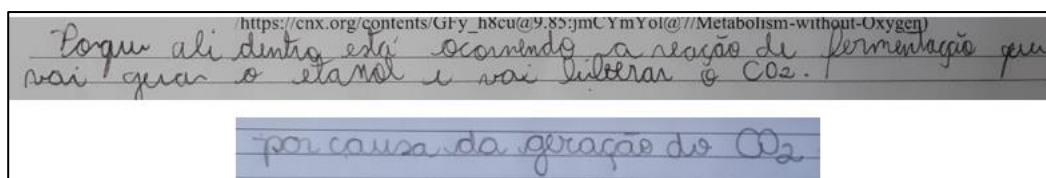 /https://cnx.org/contents/GFy_h8cu@9.85:jmCYmYol@7/Metabolism-without-Oxygen)
Porque ali dentro está ocorrendo a reação de fermentação que
vai gerar o etanol e vai liberar o CO2.
por causa da geração do CO2